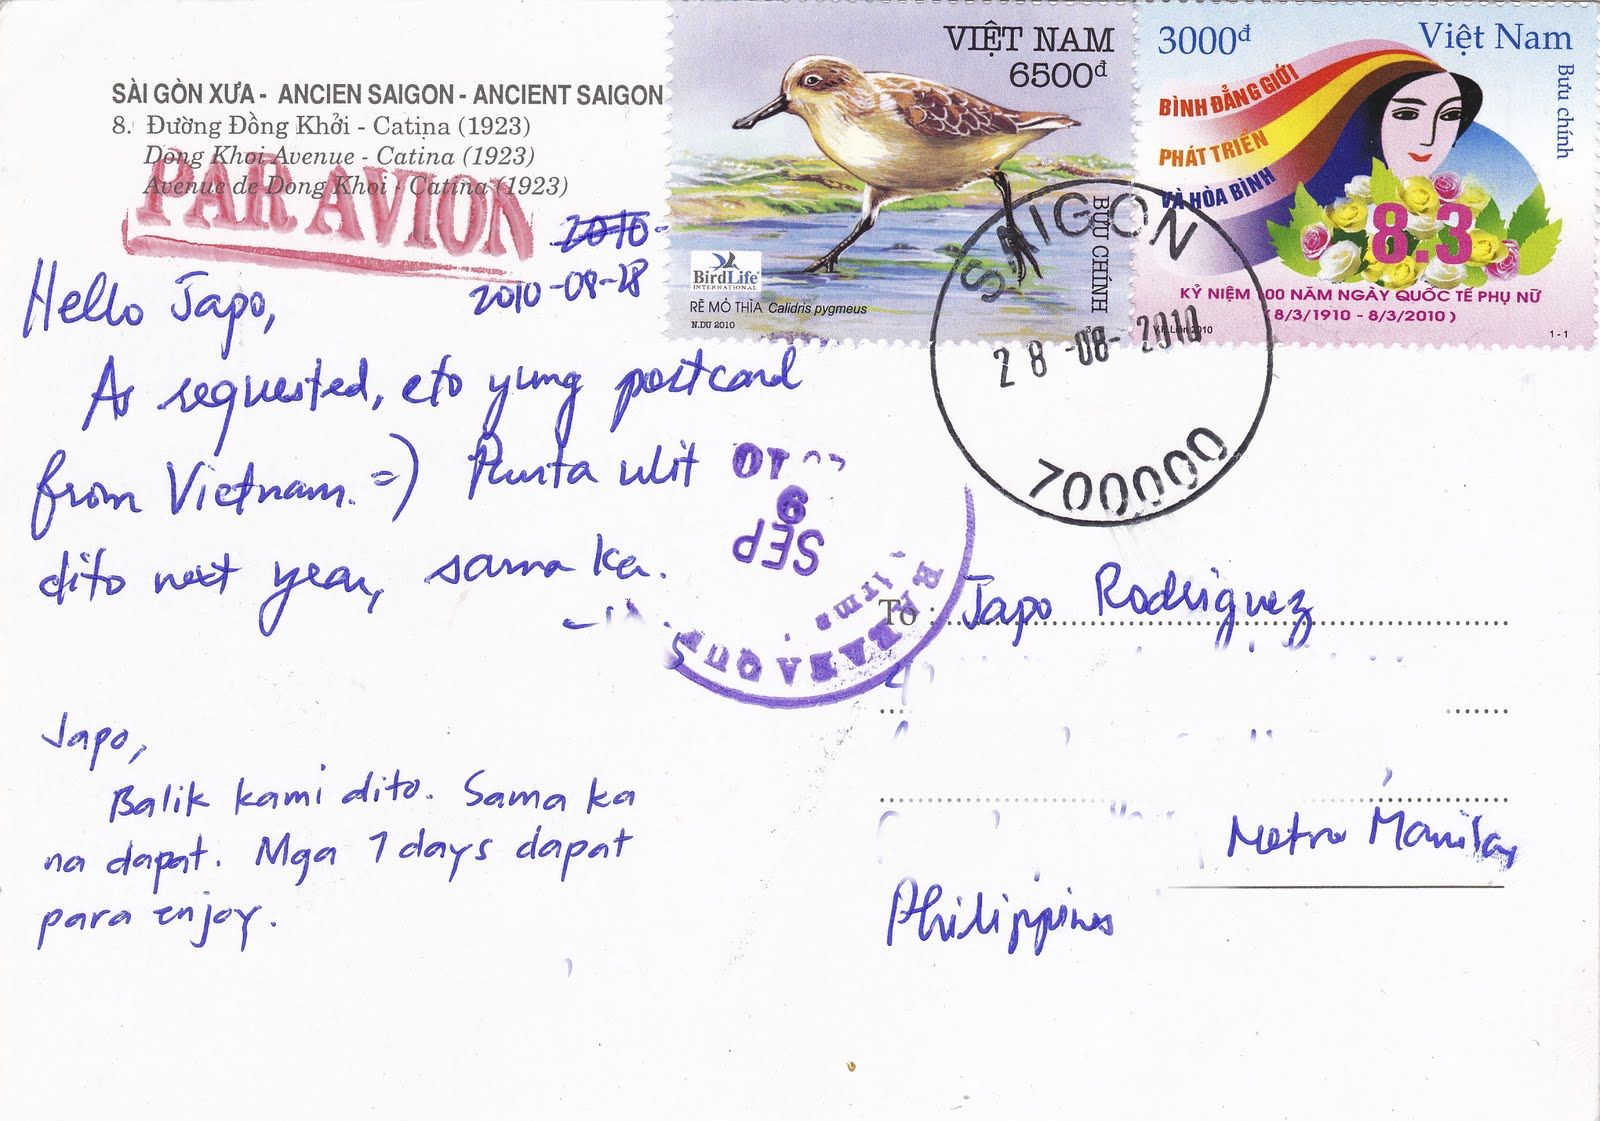 SÀI GÒN XƯA - ANCIEN SAIGON - ANCIENT SAIGON
8. Đường Đồng Khởi - Catina (1923)
Dong Khoi Avenue - Catina (1923)
Avenue de Dong Khoi - Catina (1923)
PAR AVION
VIỆT NAM
6500đ
BƯU CHÍNH
BirdLife
INTERNATIONAL
RẼ MỎ THÌA Calidris pygmeus
N.DU 2010
3000đ
Việt Nam
Bưu chính
BÌNH ĐẲNG GIỚI
PHÁT TRIỂN
VÀ HÒA BÌNH
8.3
KỶ NIỆM 100 NĂM NGÀY QUỐC TẾ PHỤ NỮ
(8/3/1910 - 8/3/2010)
2010
1-1
SAIGON
28-08-2010
700000
2010-
2010-08-28
Hello Japo,
As requested, eto yung postcard
from Vietnam. =) Punta ulit
dito next year, sama ka.
10
9
SEP
Japo,
Balik kami dito. Sama ka
na dapat. Mga 7 days dapat
para enjoy.
To : Japo Rodriguez
Metro Manila,
Philippines